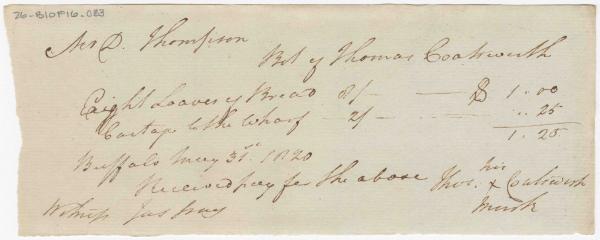 26-B10F16-083
Mr D. Thompson
Bot of Thomas Coatsworth
Eight Loaves of Bread 8/- — $ 1.00
Cartage to the Wharf — 2/- — .. 25
1.25
Buffalo May 31st 1820
Received pay for the above Thos. his x Coatsworth
Witness Jas mark